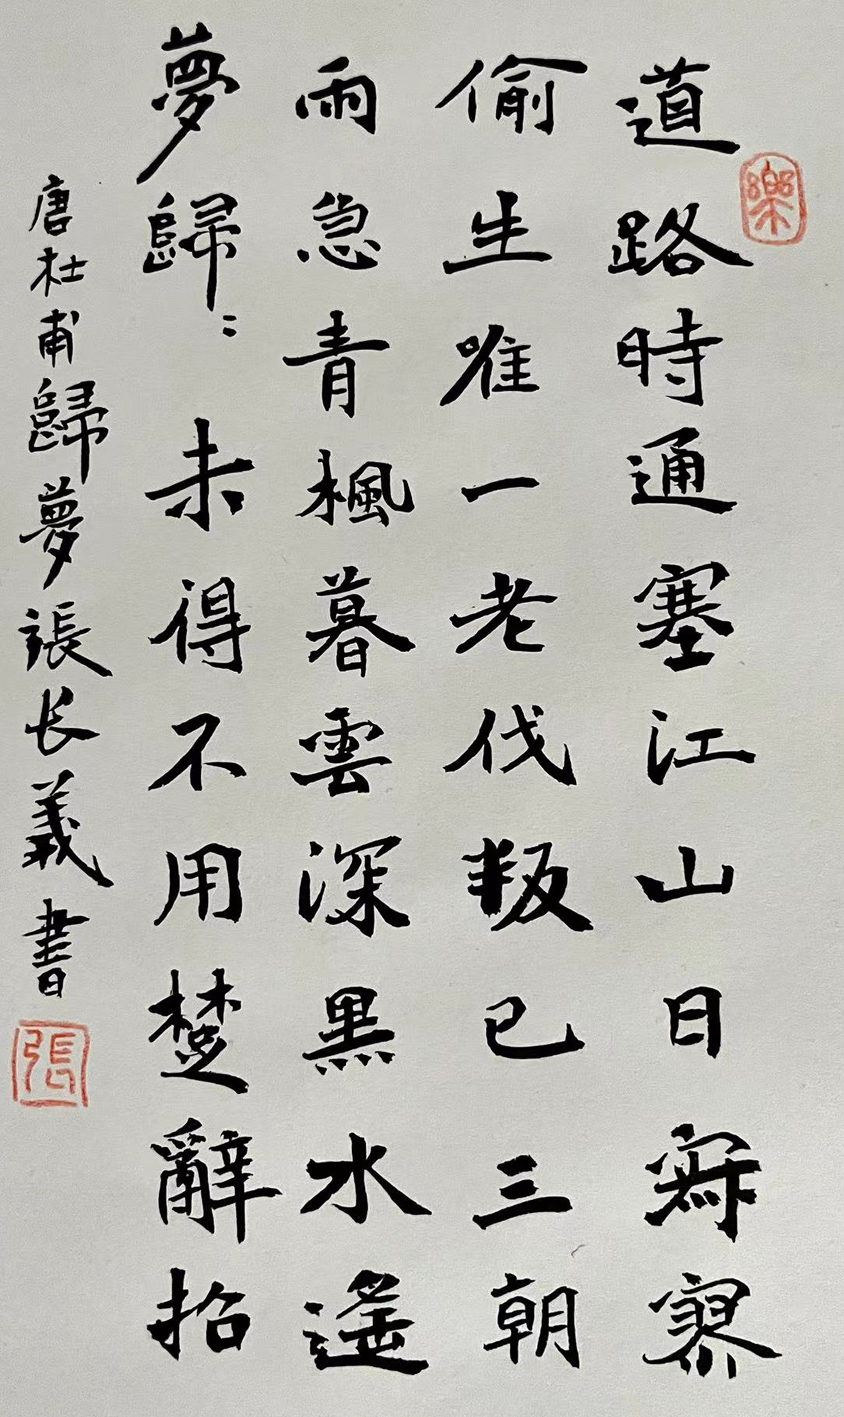 樂
道路時通塞江山日寂寥
偷生唯一老伐叛已三朝
雨急青楓暮雲深黑水遙
夢歸〻未得不用楚辭招
唐杜甫歸夢張长義書
張